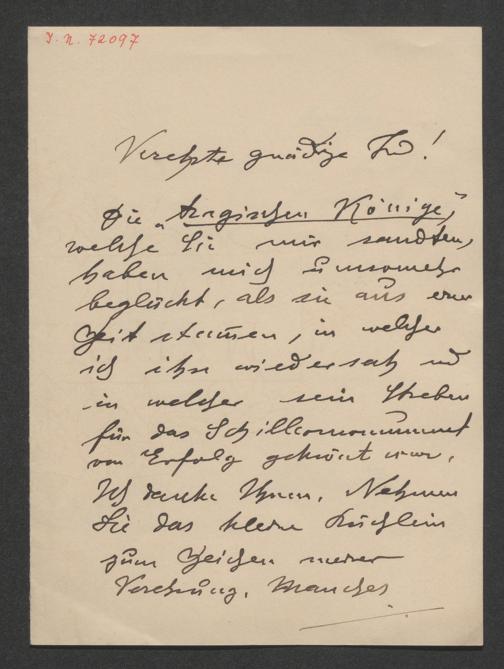 I. N. 72097
Verehrte gnädige Frau!
Die „tragischen Könige“,
welche Sie mir sandten,
haben mich umsomehr
beglückt, als sie aus einer
Zeit stammen, in welcher
ich ihn wiedersah und
in welcher sein Streben
für das Schillermonument
von Erfolg gekrönt war.
Ich danke Ihnen. Nehmen
Sie das kleine Büchlein
zum Zeichen meiner
Verehrung. Manches